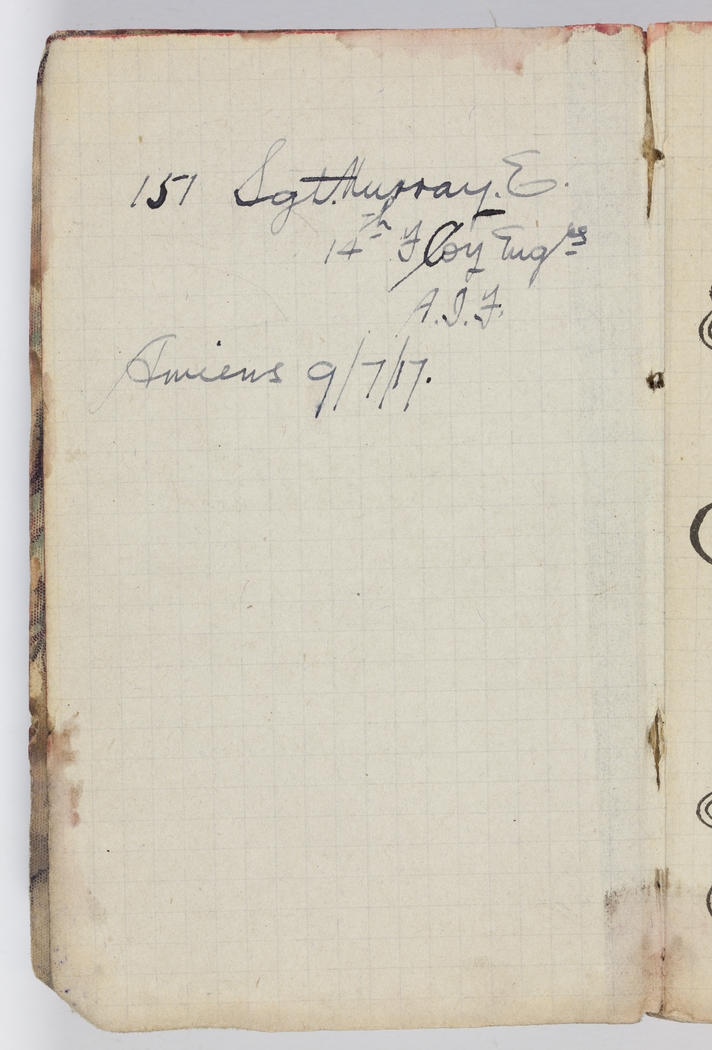 151 Sgt. Murray. E.
14th F Coy Engrs
A.I.F.
Amiens 9/7/17.